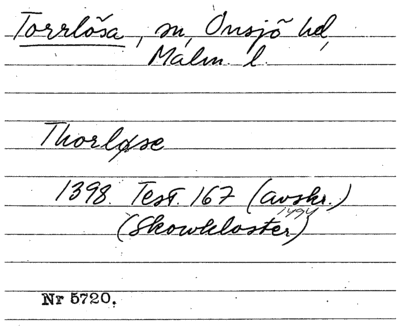 Torrlösa, sn, Onsjö hd,
Malm. l.
Thorløse
1398. Test. 167 (avskr.)
1494
(Skowkloster)
Nr 5720.